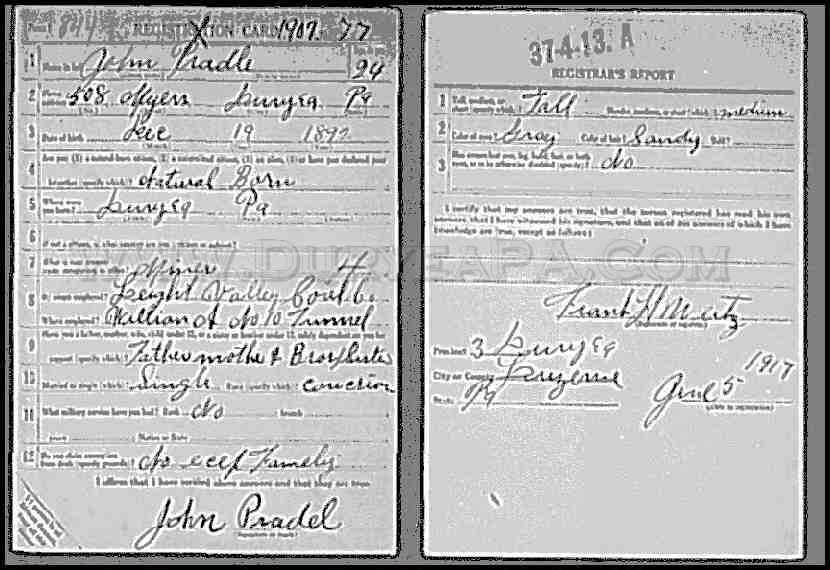 Form 1 844 REGISTRATION CARD 1907. 77
1 Name in full John Pradle Age, in yrs 24
2 Home address 508 Myers Duryea Pa
3 Date of birth Dec 19 1892
4 Are you (1) a natural-born citizen, (2) a naturalized citizen, (3) an alien, (4) or have you declared your
intention (specify which)? Natural Born
5 Where were you born? Duryea Pa
6 If not a citizen, of what country are you a citizen or subject?
7 What is your present trade, occupation, or office? Miner 4
8 By whom employed? Leight Valley Coal Co
Where employed? William A No 10 Tunnel
9 Have you a father, mother, wife, child under 12, or a sister or brother under 12, solely dependent on you for
support (specify which)? Father mother &
10 Married or single (which)? Single Race (specify which)?
11 What military service have you had? Rank No branch
years Nation or State
12 Do you claim exemption from draft (specify grounds)? No Famely
I affirm that I have verified above answers and that they are true.
John Pradel
(Signature or mark)
37-4-13. A
REGISTRAR'S REPORT
1 Tall, medium, or short (specify which)? Tall Slender, medium, or stout (which)? medium
2 Color of eyes? Gray Color of hair? Sandy Bald?
3 Has person lost arm, leg, hand, foot, or both eyes, or is he otherwise disabled (specify)? No
I certify that my answers are true, that the person registered has read his own
answers, that I have witnessed his signature, and that all of his answers of which I have
knowledge are true, except as follows:
www.DuryeaPA.Com
Frank H Mertz
(Signature of registrar)
Precinct 3 Duryea
City or County Luzerne
State Pa
June 5 1917
(Date of registration)